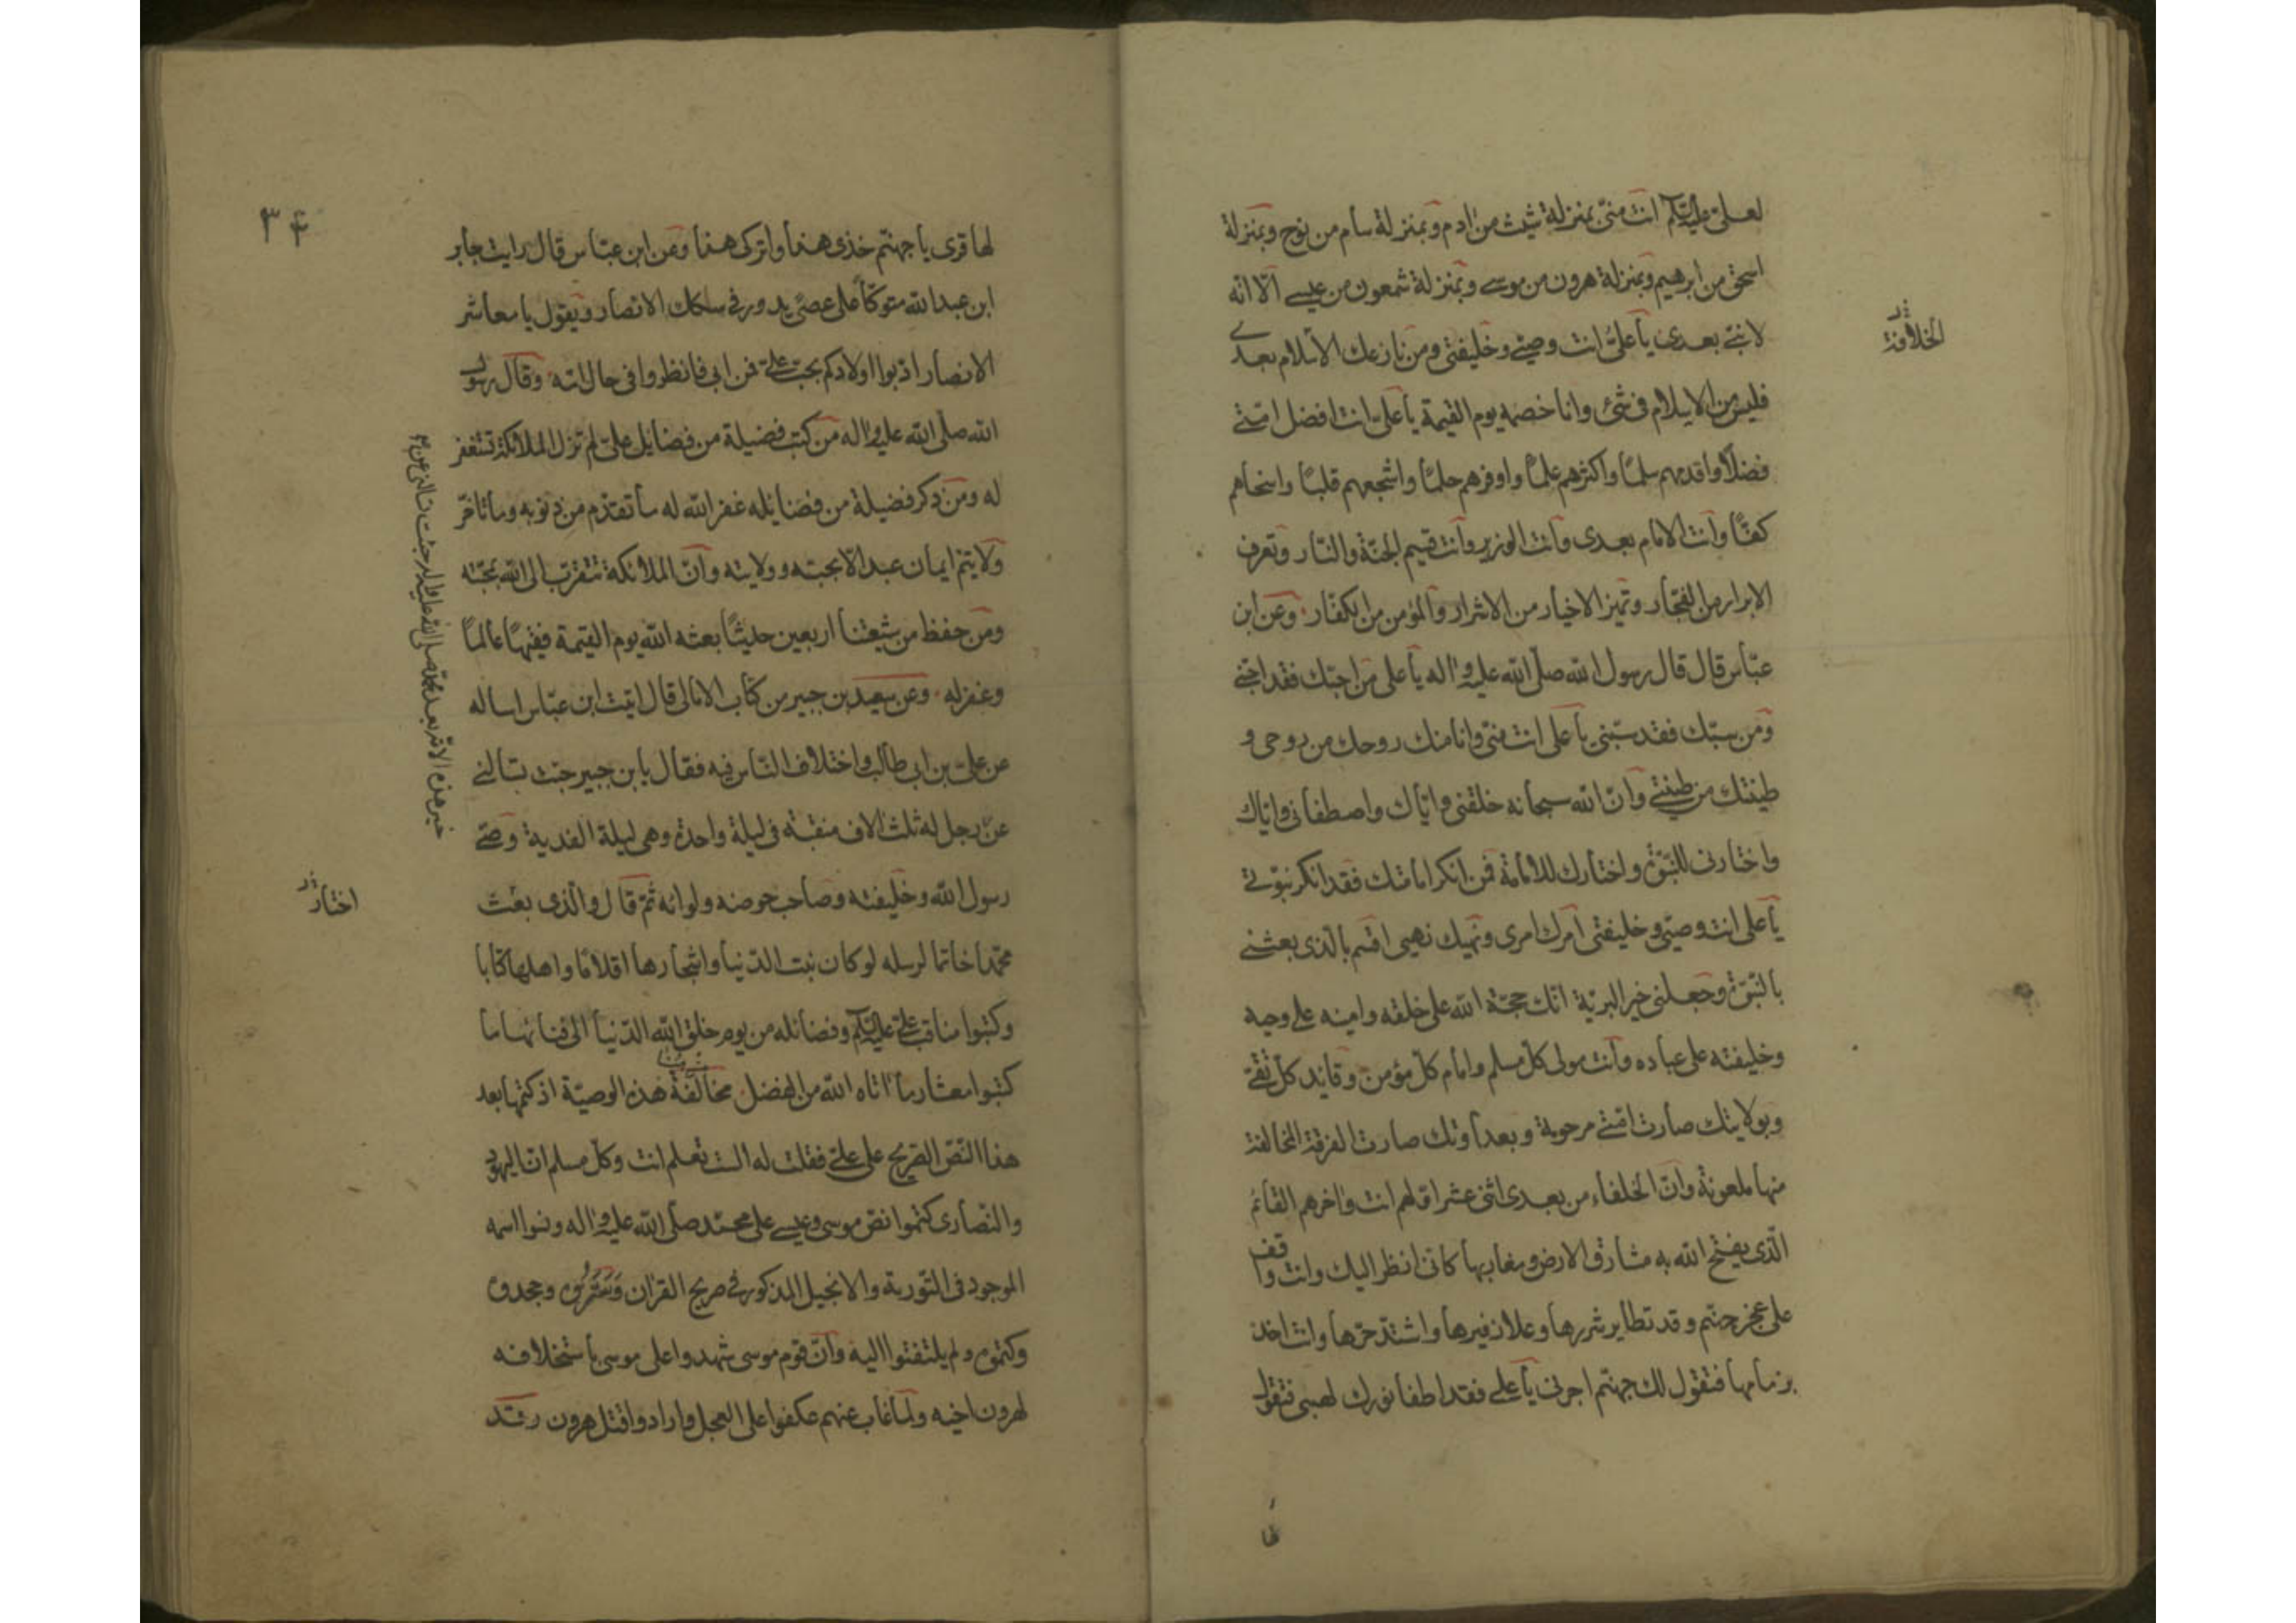 لعلى عليه السلام انت منى بمنزلة شيث من ادم وبمنزلة سام من نوح وبمنزلة
اسحق من ابرهيم وبمنزلة هرون من موسى وبمنزلة شمعون من عيسى الا انه
لا نبى بعدى يا على انت وصيى وخليفتى ومن نازعك الاسلام بعدى
الخلافة
فليس من الاسلام فى شئ وانا خصمه يوم القيمة يا على انت افضل امتى
فضلا واقدمهم سلما واكثرهم علما واوفرهم حلما واشجعهم قلبا واسخاهم
كفا وانت الامام بعدى وانت الوزير وانت قسيم الجنة والنار وتعرف
الابرار من الفجار وتميز الاخيار من الاشرار والمؤمن من الكفار وعن ابن
عباس قال قال رسول الله صلى الله عليه واله يا على من احبك فقد احبنى
ومن سبك فقد سبنى يا على انت منى وانا منك روحك من روحى و
طينتك من طينتى وان الله سبحانه خلقنى واياك واصطفانى واياك
واختارنى للنبوة واختارك للامامة فمن انكر امامتك فقد انكر نبوتى
يا على انت وصيى وخليفتى امرك امرى ونهيك نهيى اقسم بالذى بعثنى
بالنبوة وجعلنى خير البرية انك حجة الله على خلقه وامينه على وحيه
وخليفته على عباده وانت مولى كل مسلم وامام كل مؤمن وقايد كل تقى
وبولايتك صارت امتى مرحومة وبعداوتك صارت الفرقة المخالفة
منها ملعونة وان الخلفاء من بعدى اثنى عشر اولهم انت واخرهم القائم
الذى يفتح الله به مشارق الارض ومغاربها كانى انظر اليك وانت واقف
على عجز جهنم وقد تطاير شررها وعلا زفيرها واشتد حرها وانت اخذ
بزمامها فتقول لك جهنم اجرنى يا على فقد اطفا نورك لهبى فتقول
لها
۳۴
لها قرى يا جهنم خذى هذا واتركى هذا وعن ابن عباس قال رايت جابر
ابن عبد الله متوكأ على عصى يدور فى سكك الانصار ويقول يا معاشر
الانصار ادبوا اولادكم بحب على فمن ابى فانظروا فى حال امه وقال رسول
الله صلى الله عليه واله من كتب فضيلة من فضايل على لم تزل الملائكة تستغفر
له ومن ذكر فضيلة من فضايله غفر الله له ما تقدم من ذنوبه وما تاخر
ولا يتم ايمان عبد الا بمحبته وولايته وان الملائكة تتقرب الى الله بمحبته
ومن حفظ من شيعتنا اربعين حديثا بعثه الله يوم القيمة فقيها عالما
وغفر له وعن سعيد بن جبير من كتاب الامالى قال اتيت ابن عباس اساله
عن على بن ابى طالب واختلاف الناس فيه فقال يا بن جبير جئت تسالنى
خير هذه الامة بعد محمد صلى الله عليه واله جئت تسالنى عن
عن رجل له ثلث الاف منقبة فى ليلة واحدة وهى ليلة الفدية وصى
رسول الله وخليفته وصاحب حوضه ولوائه ثم قال والذى بعث
اختار
محمدا خاتما لرسله لو كان نبت الدنيا واشجارها اقلاما واهلها كتابا
وكتبوا مناقب على عليه السلام وفضائله من يوم خلق الله الدنيا الى فنائها ما
كتبوا معشار ما اتاه الله من الفضل مخالفة هذه الوصية اذ كتمها بعد
هذا النص الصريح على على فقلت له الست تعلم انت وكل مسلم ان اليهود
والنصارى كتموا نص موسى وعيسى على محمد صلى الله عليه واله ونسوا اسمه
الموجود فى التورية والانجيل المذكور فى صريح القران وجحدوه
وكتموه ولم يلتفتوا اليه وان قوم موسى شهدوا على موسى باستخلافه
لهرون اخيه ولما غاب عنهم عكفوا على العجل وارادوا قتل هرون وقد